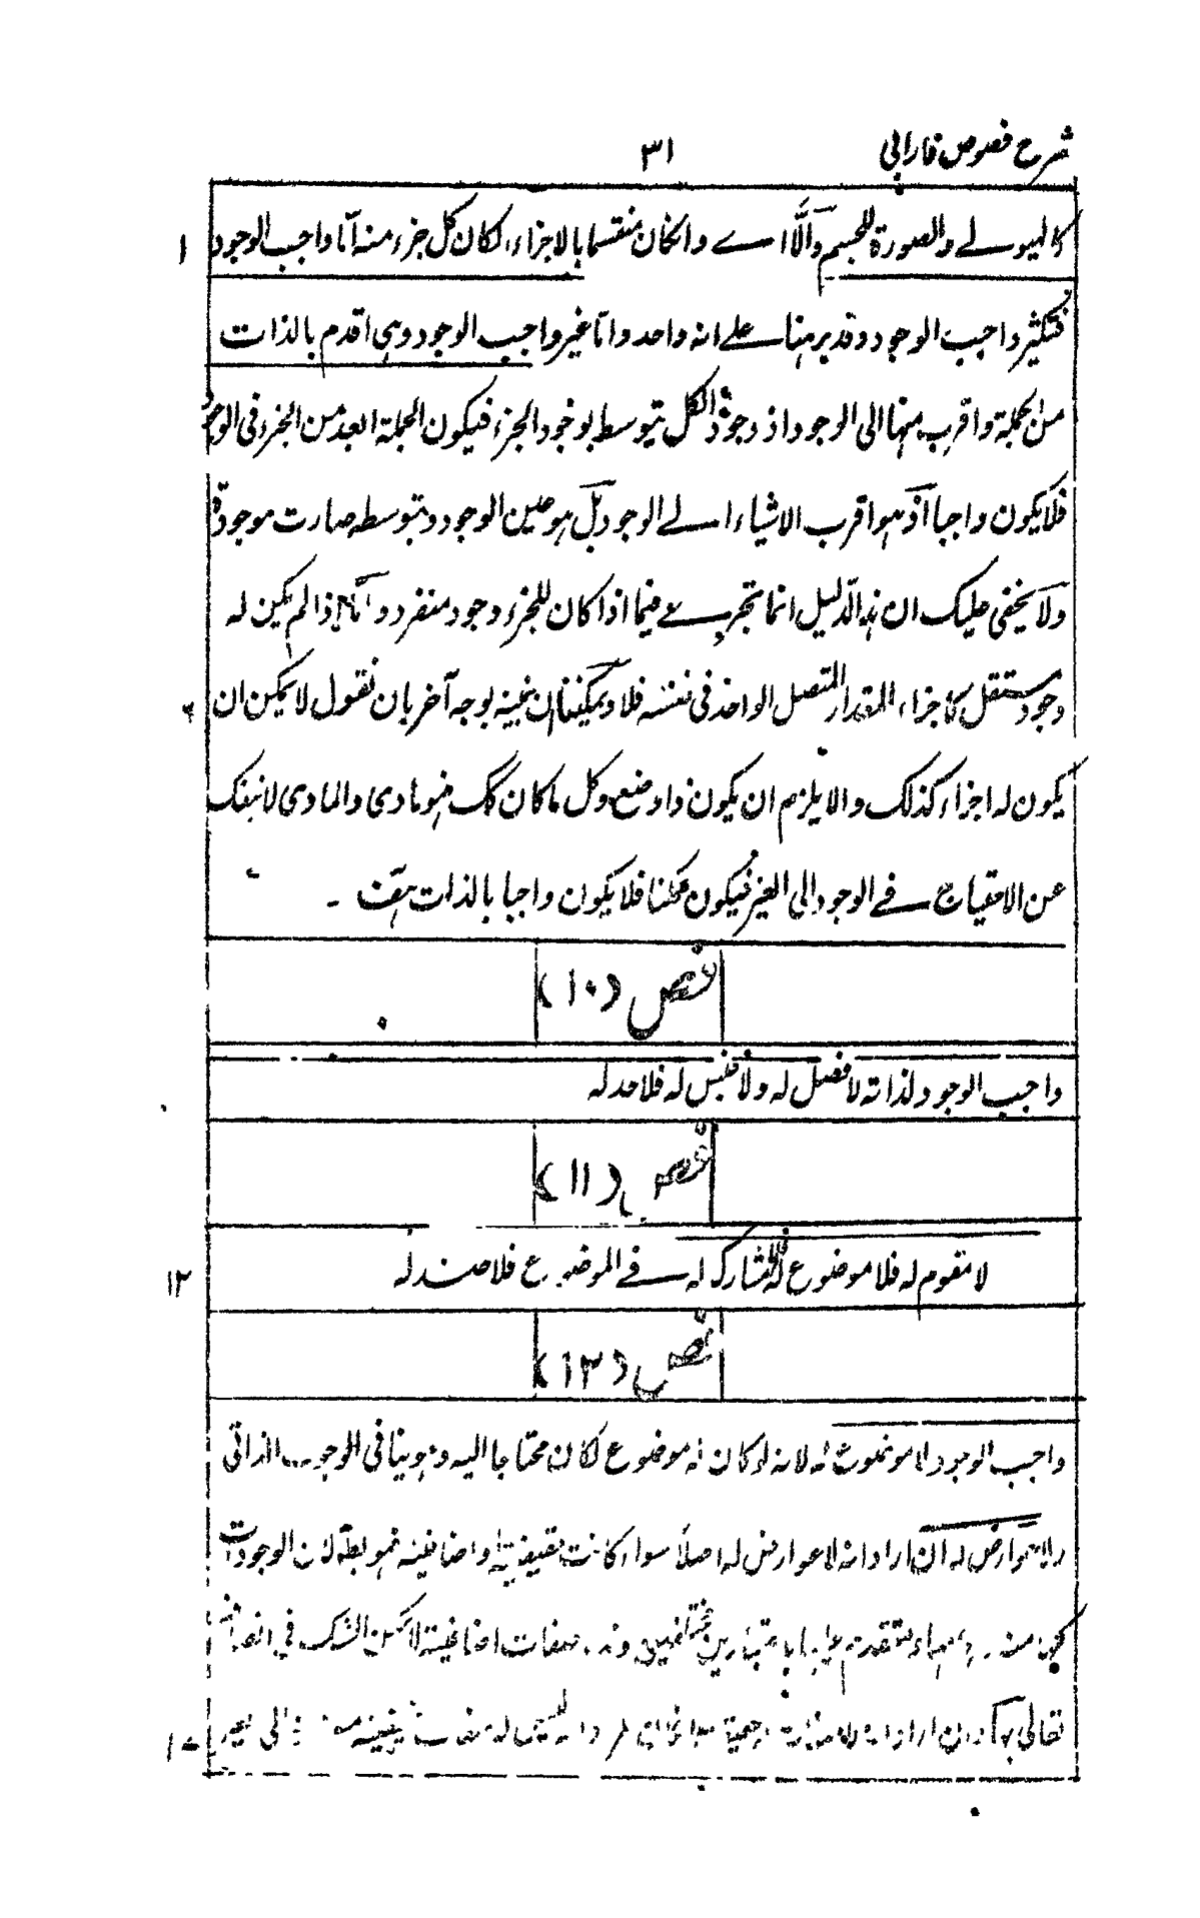 شرح فصوص فارابی
٣١
کالہیولے والصورة للجسم وَالَّا اے وانکان منقسما بالاجزاء لکان کل جزء منه اما واجب الوجود
١
فتکثر واجب الوجود وقد برہنا علے انه واحد واما غیر واجب الوجود وہی اقدم بالذات
من الجملة واقرب منہا الی الوجود اذ وجود الکل یتوسط بوجود الجزء فیکون الجملة ابعد من الجزء فی الوجود
فلا یکون واجبا اذ ہو اقرب الاشیاء الے الوجود بل ہو عین الوجود وبتوسطه صارت موجودة
ولا یخفی علیک ان ہذا الدلیل انما یجرے فیما اذا کان للجزء وجود منفرد واما اذا لم یکن له
وجود مستقل کاجزاء المقدار المتصل الواحد فی نفسه فلا ویمکننا ان نبینه بوجه آخر بان نقول لا یمکن ان
٦
یکون له اجزاء کذلک والا یلزم ان یکون ذا وضع وکل ما کان کک فہو مادی والمادی لا ینفک
عن الاحتیاج فے الوجود الی الغیر فیکون ممکنا فلا یکون واجبا بالذات ہف -
فص (١٠)
واجب الوجود لذاته لا فصل له ولا جنس له فلا حد له
فص (١١)
لا مقوم له فلا موضوع له فلا مشارک له فے الموضوع فلا ضد له
١٢
فص (١٢)
واجب الوجود لا موضوع له لانه لو کان له موضوع لکان محتاجا الیه وہو ینافی الوجوب الذاتی
ولا عوارض له ان اراد انه لا عوارض له اصلا سواء کانت حقیقیة او اضافیة فہو باطل لان الوجودات
صفات اضافیة لا یمکن الشک فی
تعالی